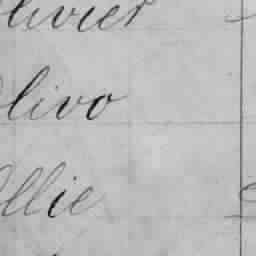 livier
livo
llie